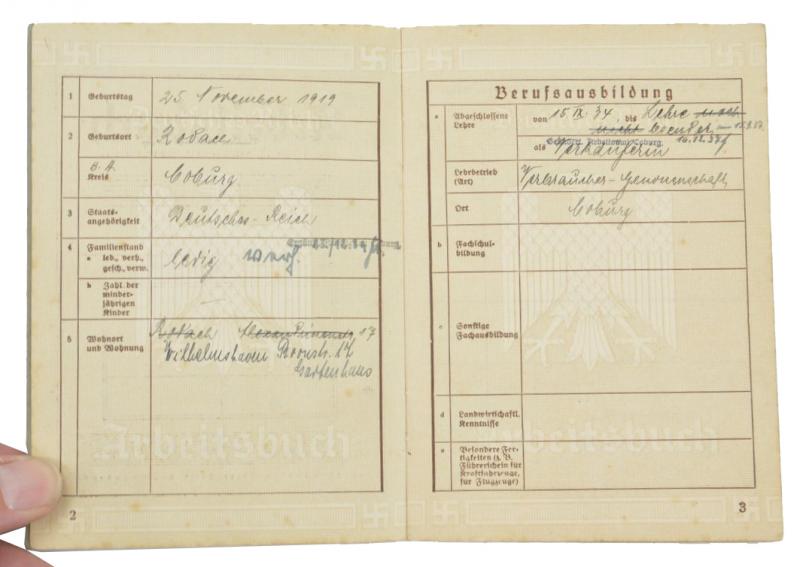 1 Geburtstag 25. November 1919
2 Geburtsort Rodach
B. A.
Kreis Coburg
3 Staats-
angehörigkeit Deutsches-Reich
4 Familienstand
a led., verh.,
gesch., verw. ledig verh.
b Zahl der
minder-
jährigen
Kinder —
5 Wohnort
und Wohnung Rodach 17
Wilhelmshaven Roonstr. 17
Gartenhaus
Arbeitsbuch
2
Berufsausbildung
a Abgeschlossene
Lehre von 15.IV.34 bis Lehre noch
nicht beendet
als Verkäuferin
Lehrbetrieb
(Art) Verbraucher-Genossenschaft
Ort Coburg
b Fachschul-
bildung
c Sonstige
Fachausbildung
d Landwirtschaftl.
Kenntnisse
e Besondere Fer-
tigkeiten (z. B.
Führerschein für
Kraftfahrzeuge,
für Flugzeuge)
Arbeitsbuch
3